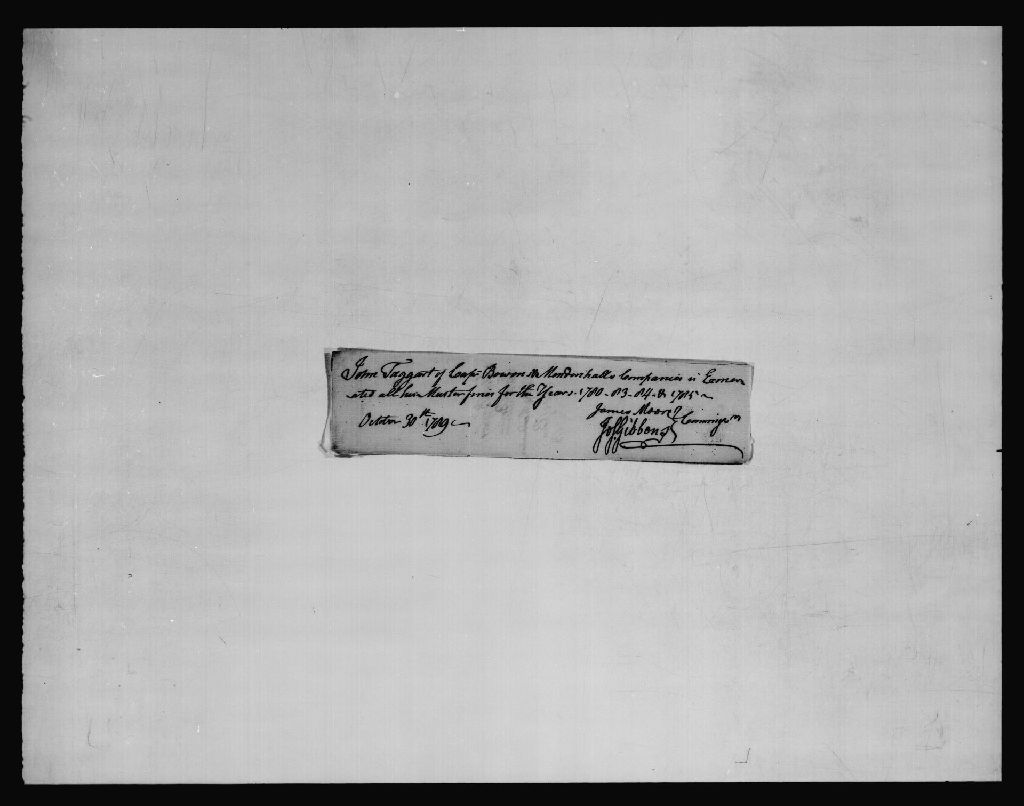 John Taggart of Capt Bowen & Mendenhalls Companies is Exoner
ated all his Muster fines for the Years 1780 - 83 - 84 - & 1785
James Moore
October 30th 1789
Jos Gibbons